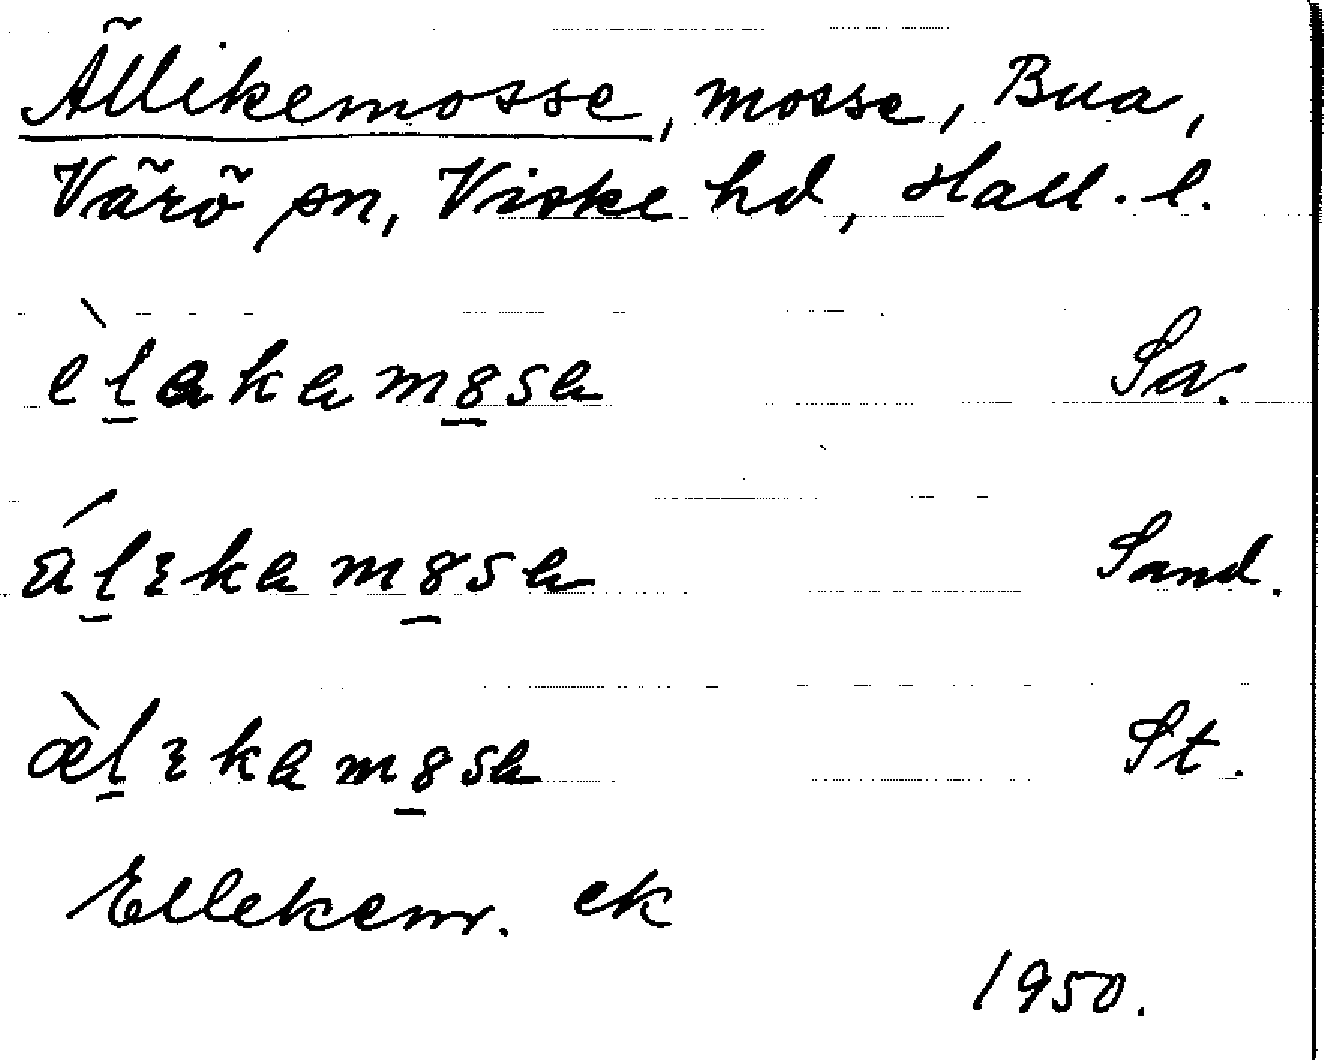 Ällikemosse, mosse, Bua,
Värö sn, Viske hd, Hall. l.
èl̠akam8̠sa Sa.
ál̠ɩkam8̠sa Sand.
æ̀l̠ɩkam8̠sa St.
Ellekem. ek
1950.